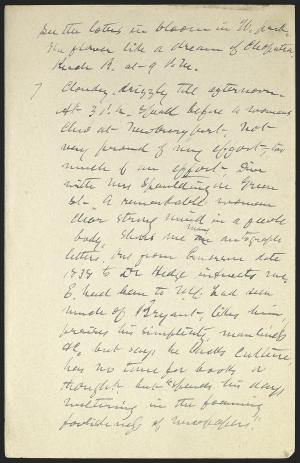 See the lotus in bloom in W. park.
The flower like a dream of Cleopatra.
Reach B. at 9 P.M.
7 Cloudy, drizzly till afternoon.
At 3 P.M. Read before a womans
Club at Newburyport. Not
very proud of my effort, too
much of an effort. Dine
with Mrs Spaulding on Green
St. A remarkable woman
clear strong mind in a feeble
body. Shows me many autograph
letters. One from Emerson date
1838 to Dr Hedge interests me.
E. had been to N.Y. had seen
much of Bryant, likes him,
praises his simplicity, manliness
&c, but says he lacks culture,
has no time for books or
thought but "spends his days
weltering in the foaming
of newspapers."